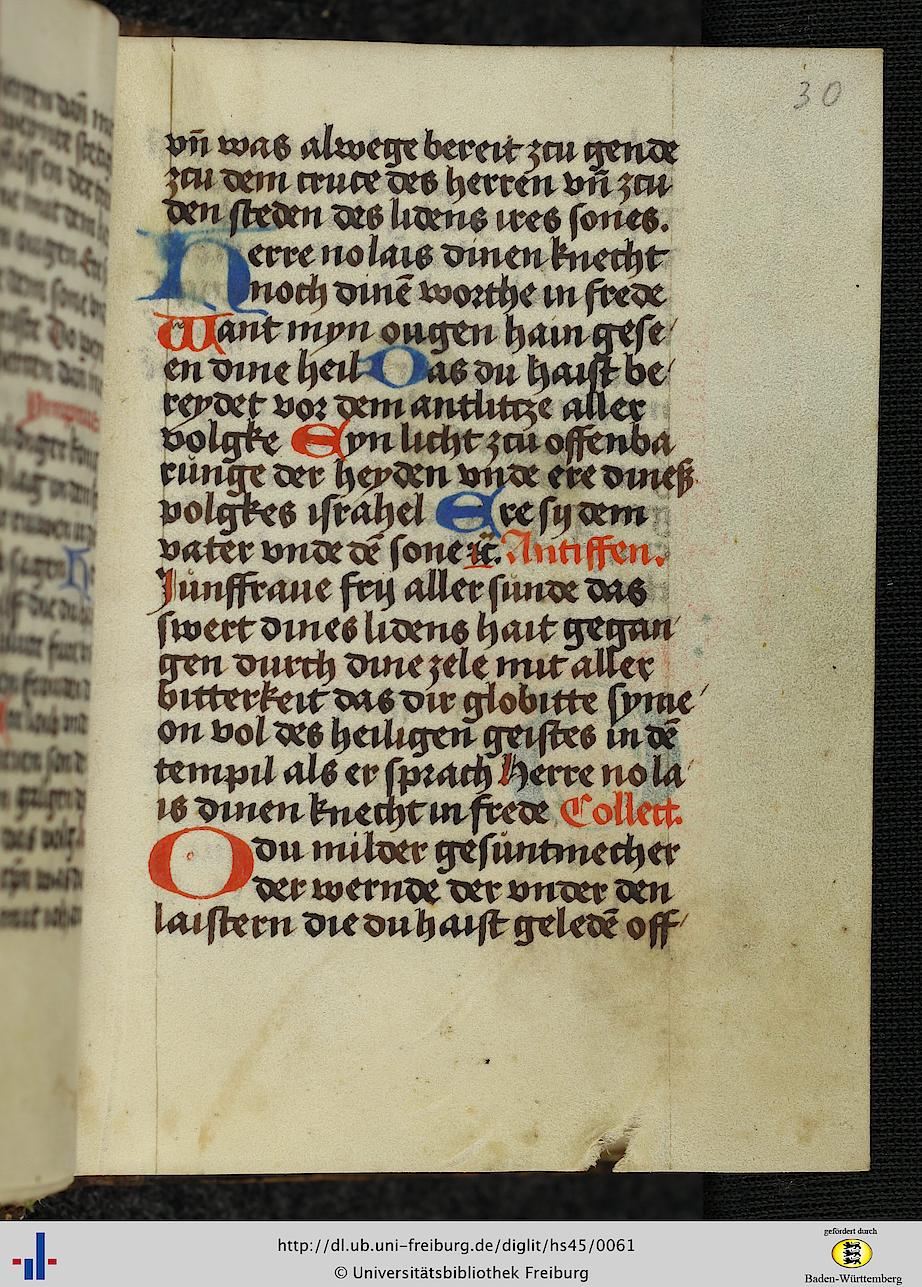 30
vn̄ was alwege bereit zcu gende
zcu dem cruce des herren vn̄ zcu
den steden des lidens ires sones.
Herre no lais dinen knecht
noch dinē worthe in frede
Want myn ougen hain gese
en dine heil Das du haist be
reydet vor dem antlitcze aller
volgke Eyn licht zcu offenba
runge der heyden vnde ere dineß
volgkes israhel Ere sij dem
vater vnde dē sone ꝛc̄. Antiffen.
Junffraue frij aller sunde das
swert dines lidens hait gegan
gen durch dine zele mit aller
bitterkeit das dir globitte syme
on vol des heiligen geistes in dē
tempil als er sprach Herre no la
is dinen knecht in frede Collect.
O du milder gesuntmecher
der wernde der vnder den
laistern die du haist geledē off
http://dl.ub.uni-freiburg.de/diglit/hs45/0061
© Universitätsbibliothek Freiburg
gefördert durch
Baden-Württemberg